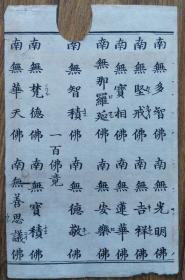 南無多智佛 南無光明佛
南無堅戒佛 南無吉祥佛
南無寶相佛 南無蓮華佛
南無那羅延佛 南無安樂佛
南無智積佛 南無德敬佛
一百佛竟
南無梵德佛 南無寶積佛
南無華天佛 南無善思議佛